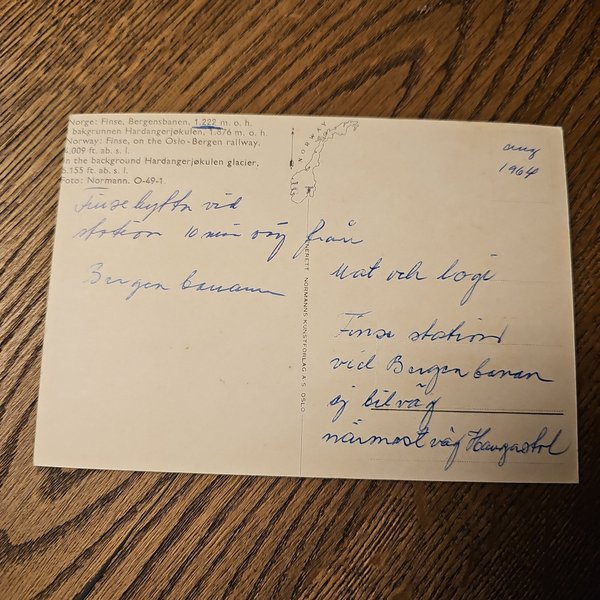 Norge: Finse, Bergensbanen, 1.222 m. o. h.
bakgrunnen Hardangerjøkulen, 1.876 m. o. h.
Norway: Finse, on the Oslo-Bergen railway,
4.009 ft. ab. s. l.
in the background Hardangerjøkulen glacier,
6.155 ft. ab. s. l.
Foto: Normann. O-49-1.
NORWAY
aug
1964
Finse hytta vid
station 10 min väg från
Bergen banan
ENERETT NORMANNS KUNSTFORLAG A.S. OSLO
Mat och logi
Finse station
vid Bergen banan
ej bilväg
närmast väg Haugastol